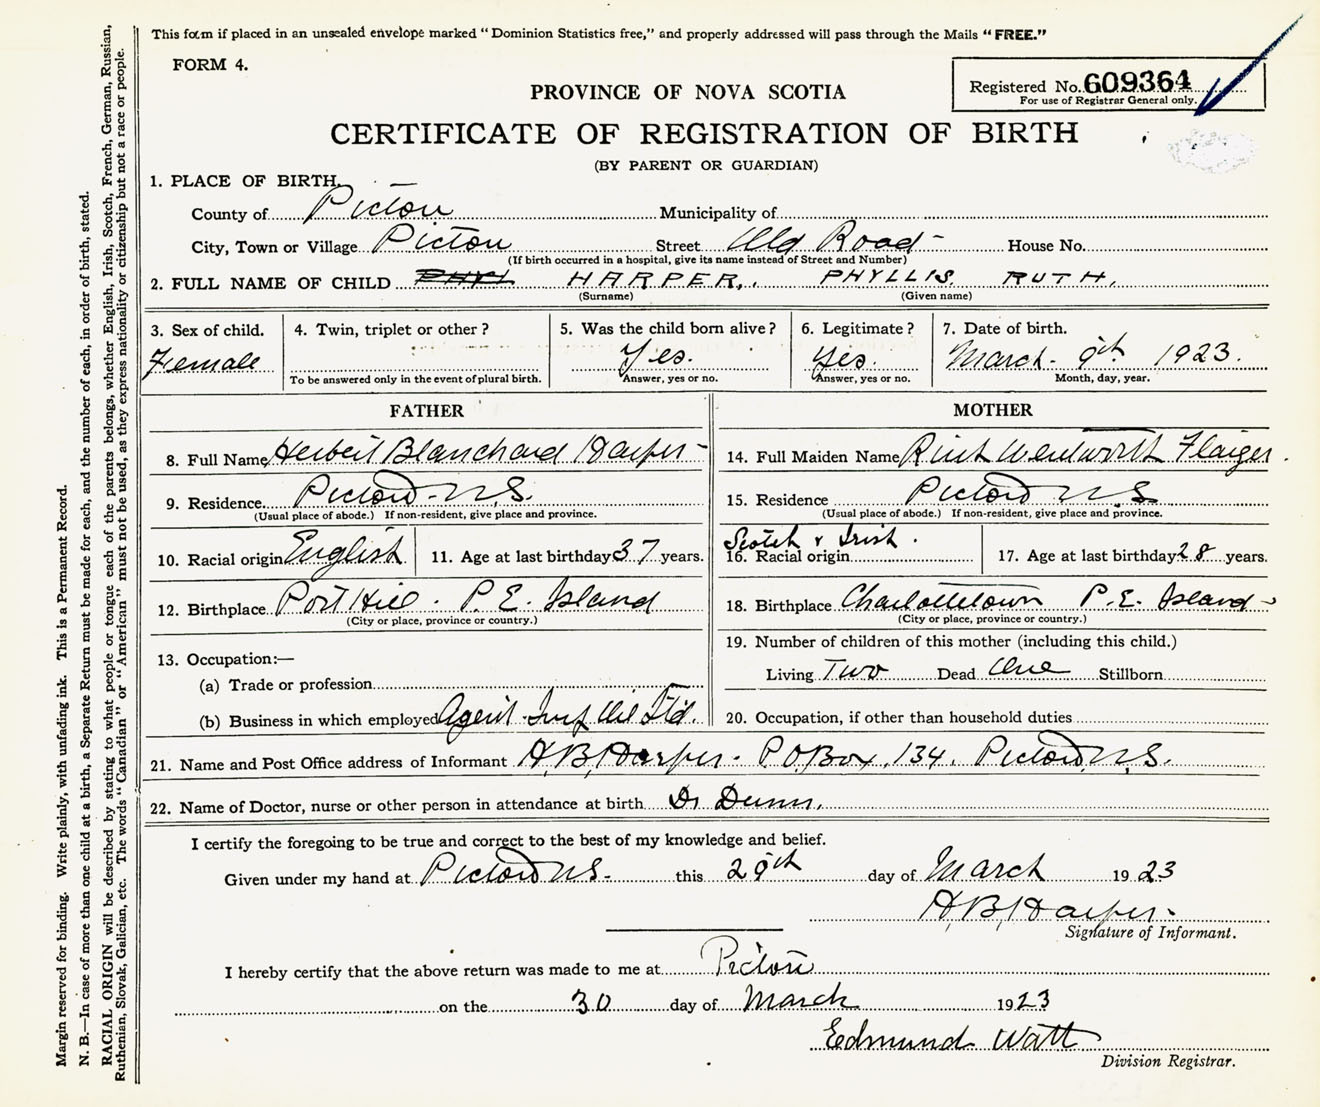 This form if placed in an unsealed envelope marked "Dominion Statistics free," and properly addressed will pass through the Mails "FREE."
FORM 4.
Registered No. 609364
For use of Registrar General only.
PROVINCE OF NOVA SCOTIA
CERTIFICATE OF REGISTRATION OF BIRTH
(BY PARENT OR GUARDIAN)
1. PLACE OF BIRTH.
County of Pictou Municipality of
City, Town or Village Pictou Street Old Road House No.
(If birth occurred in a hospital, give its name instead of Street and Number)
2. FULL NAME OF CHILD HARPER, PHYLLIS. RUTH.
(Surname) (Given name)
3. Sex of child. 4. Twin, triplet or other? 5. Was the child born alive? 6. Legitimate? 7. Date of birth.
Female Yes. Yes. March. 9th 1923.
To be answered only in the event of plural birth. Answer, yes or no. Answer, yes or no. Month, day, year.
FATHER MOTHER
8. Full Name Herbert Blanchard Harper 14. Full Maiden Name Wentworth
9. Residence Pictou N.S. 15. Residence Pictou N S
(Usual place of abode.) If non-resident, give place and province. (Usual place of abode.) If non-resident, give place and province.
10. Racial origin English 11. Age at last birthday 37 years. 16. Racial origin Scotch & Irish. 17. Age at last birthday 28 years.
12. Birthplace Port Hill. P. E. Island 18. Birthplace Charlottetown P.E. Island
(City or place, province or country.) (City or place, province or country.)
13. Occupation:— 19. Number of children of this mother (including this child.)
(a) Trade or profession Living Two Dead One Stillborn
(b) Business in which employed Agent Imp Oil Ltd. 20. Occupation, if other than household duties
21. Name and Post Office address of Informant H.B. Harper. P.O. Box. 134. Pictou, N.S.
22. Name of Doctor, nurse or other person in attendance at birth Dr Dunn.
I certify the foregoing to be true and correct to the best of my knowledge and belief.
Given under my hand at Pictou N.S. this 29th day of March 1923
H.B. Harper.
Signature of Informant.
I hereby certify that the above return was made to me at Pictou
on the 30 day of March 1923
Edmund Watt
Division Registrar.
Margin reserved for binding. Write plainly, with unfading ink. This is a Permanent Record.
N. B.—In case of more than one child at a birth, a Separate Return must be made for each, and the number of each, in order of birth, stated.
RACIAL ORIGIN will be described by stating to what people or tongue each of the parents belongs, whether English, Irish, Scotch, French, German, Russian,
Ruthenian, Slovak, Galician, etc. The words "Canadian" or "American" must not be used, as they express nationality or citizenship but not a race or people.